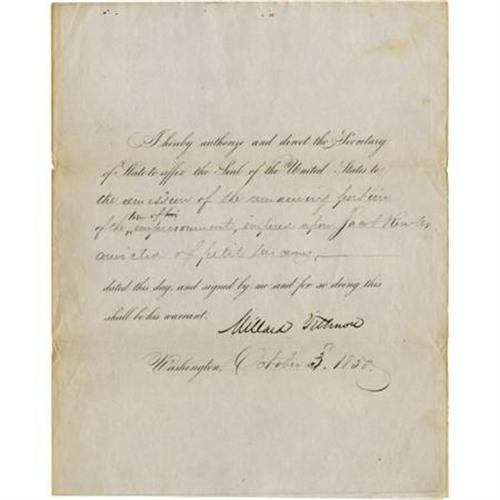 I hereby authorize and direct the Secretary
of State to affix the Seal of the United States to
the remission of the remaining portion
of the term of his imprisonment, imposed upon Jacob
convicted of petit larceny,
dated this day, and signed by me and for so doing this
shall be his warrant.
Millard Fillmore
Washington, October 3, 1850.